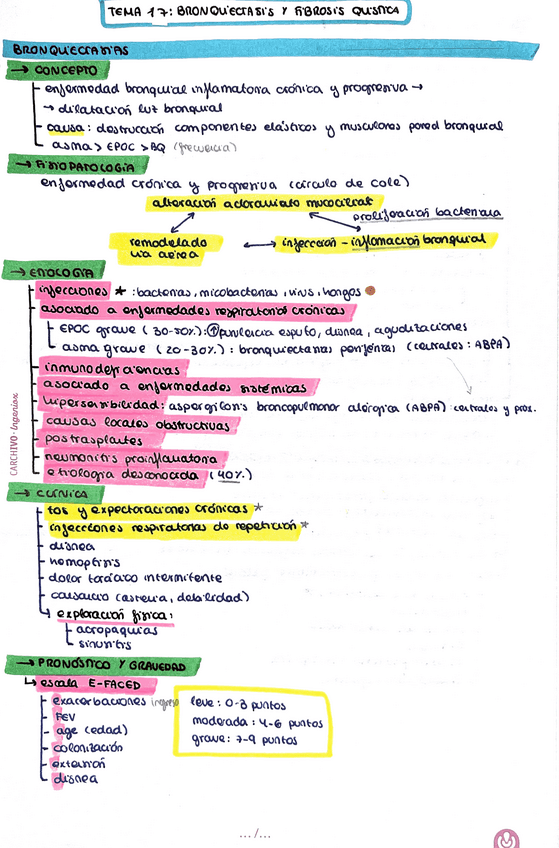 TEMA 17: BRONQUIECTASIS Y FIBROSIS QUISTICA
BRONQUIECTASIAS
→ CONCEPTO
enfermedad bronquial inflamatoria crónica y progresiva →
→ dilatación luz bronquial
causa: destrucción componentes elásticos y musculares pared bronquial
asma > EPOC > BQ (frecuencia)
→ FISIOPATOLOGÍA
enfermedad crónica y progresiva (círculo de cole)
alteración aclaramiento mucociliar
proliferación bacteriana
remodelado
vía aérea
infección - inflamación bronquial
→ ETIOLOGÍA
infecciones * : bacterias, micobacterias, virus, hongos
asociado a enfermedades respiratorias crónicas
EPOC grave (30-50%): ↑ purulencia esputo, disnea, agudizaciones
asma grave (20-30%): bronquiectasias periféricas (centrales: ABPA)
inmunodeficiencias
asociado a enfermedades sistémicas
hipersensibilidad: aspergilosis broncopulmonar alérgica (ABPA) centrales y prox.
causas locales obstructivas
postrasplantes
neumonitis proinflamatoria
etiología desconocida (40%)
CARCHIVO-Ingeniox
→ CLÍNICA
tos y expectoraciones crónicas *
infecciones respiratorias de repetición *
disnea
hemoptisis
dolor torácico intermitente
cansancio (astenia, debilidad)
exploración física:
acropaquias
sinusitis
→ PRONÓSTICO Y GRAVEDAD
escala E-FACED
exacerbaciones ingreso
FEV
age (edad)
colonización
extensión
disnea
leve: 0-3 puntos
moderada: 4-6 puntos
grave: 7-9 puntos
.../...